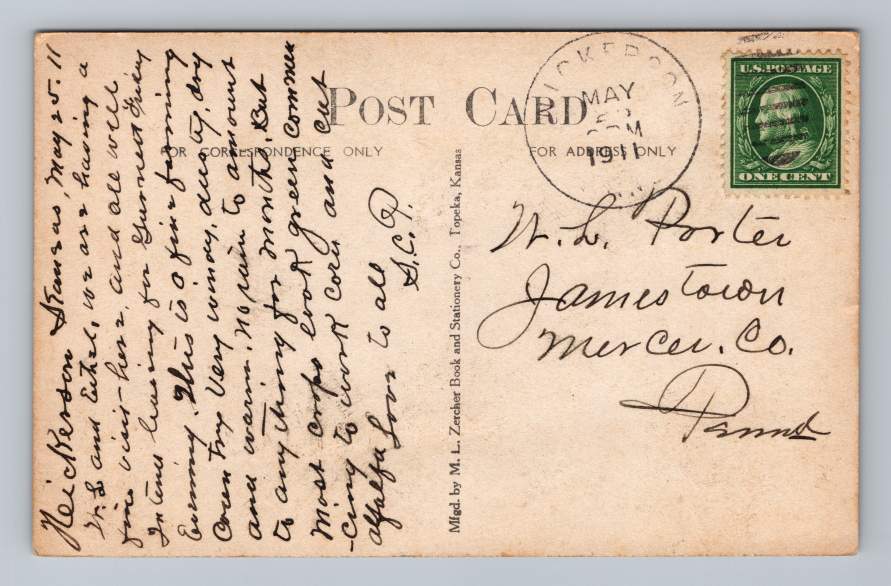 POST CARD
FOR CORRESPONDENCE ONLY
FOR ADDRESS ONLY
NICKERSON
MAY
1911
U.S. POSTAGE
ONE CENT
Nickerson Kansas, May 25. 11
W. L and Ethel, we are having a
fine visit here, and all well
Intend leaving for Garnett Friday
Evening. This is a fine farming
Country Very windy, dusty, dry
and warm. No rain to amount
to anything for months. But
most crops look green commen
-cing to work corn and cut
alfalfa Love to all
S.C.P.
Mfgd. by M. L. Zercher Book and Stationery Co., Topeka, Kansas
W. L. Porter
Jamestown
Mercer. Co.
Penna